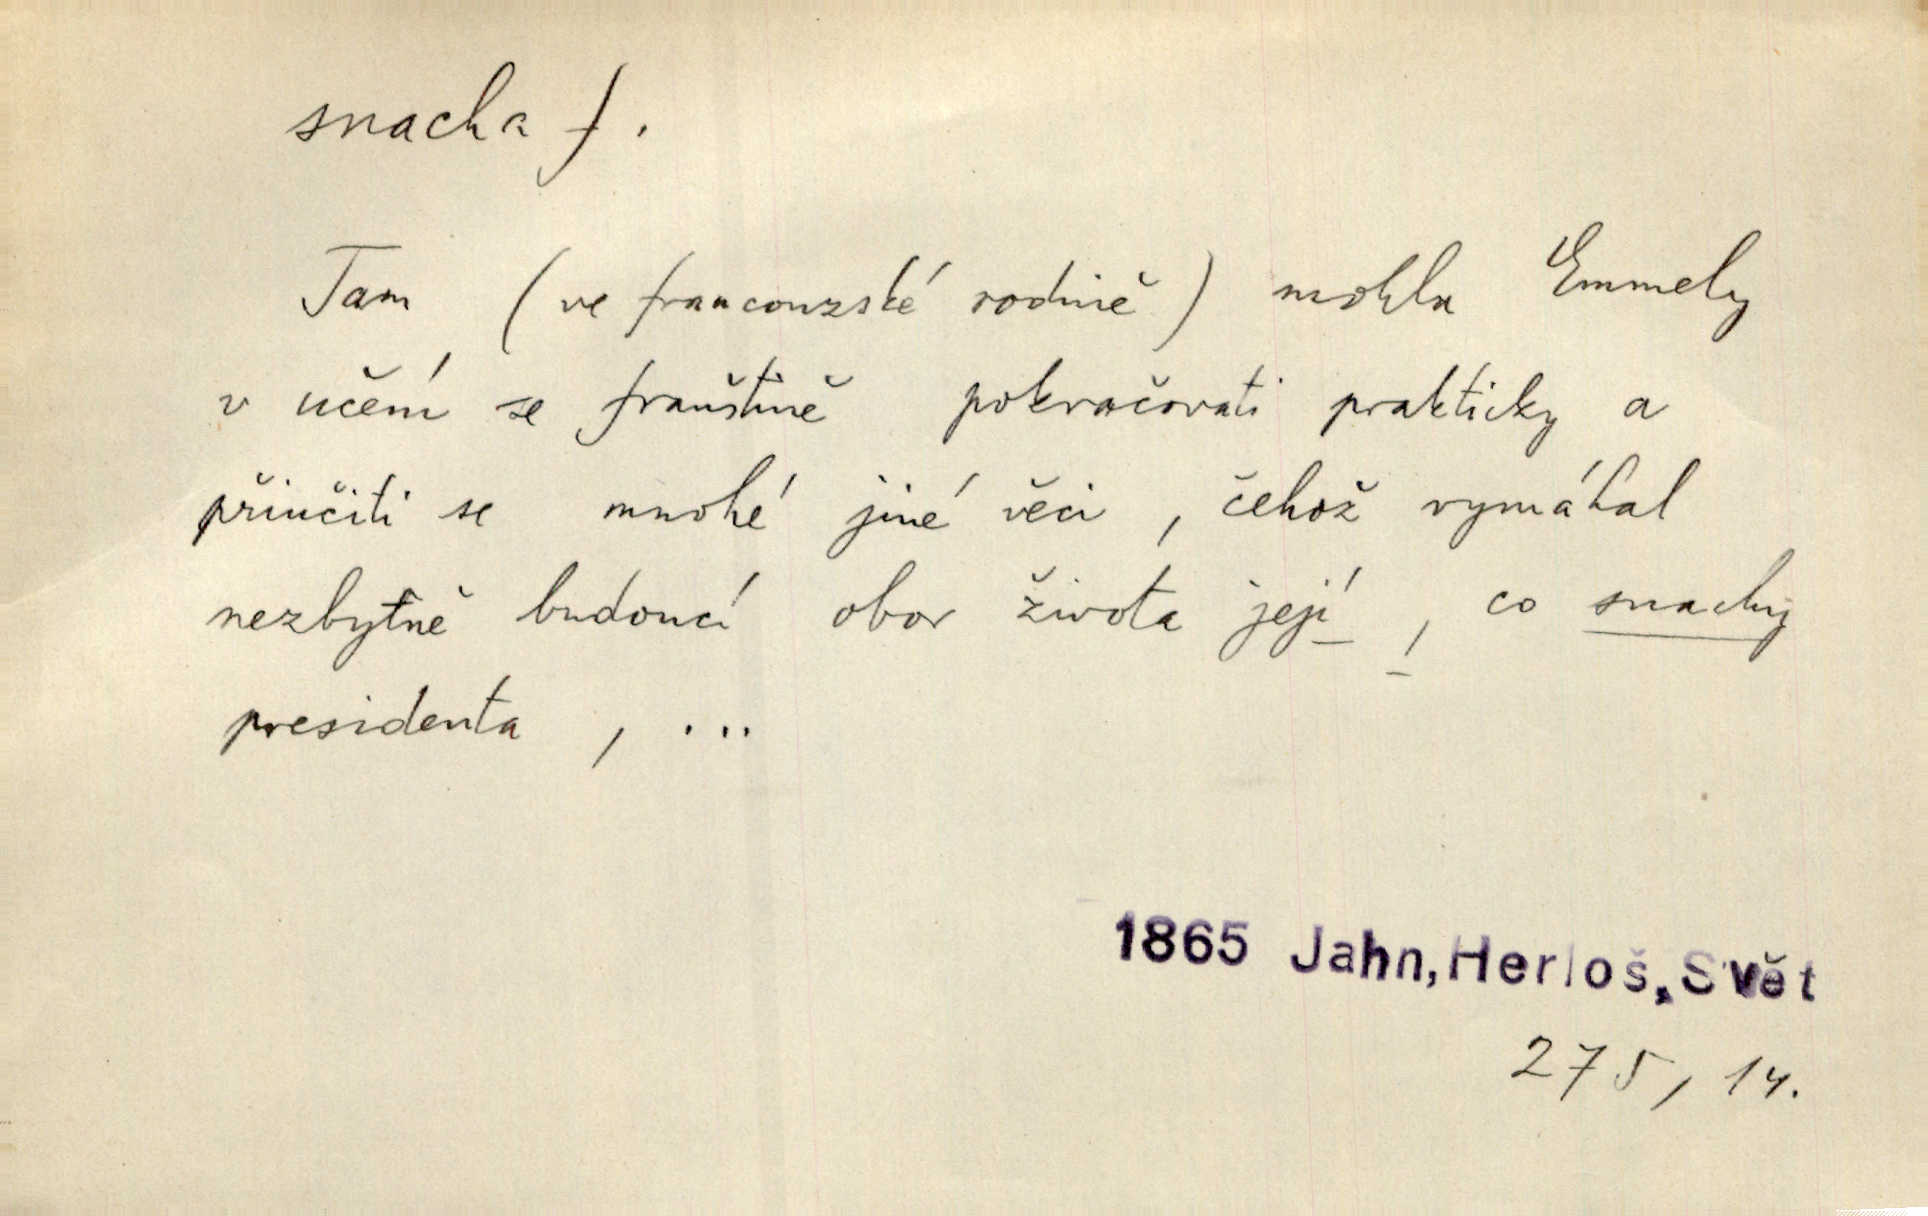 snacha f.
Tam (ve francouzské rodině) mohla Emmely
v učení se franštině pokračovati prakticky a
přiučiti se mnohé jiné věci, čehož vymáhal
nezbytně budoucí obor života její, co snachy
presidenta, ...
1865 Jahn, Herloš, Svět
275, 14.